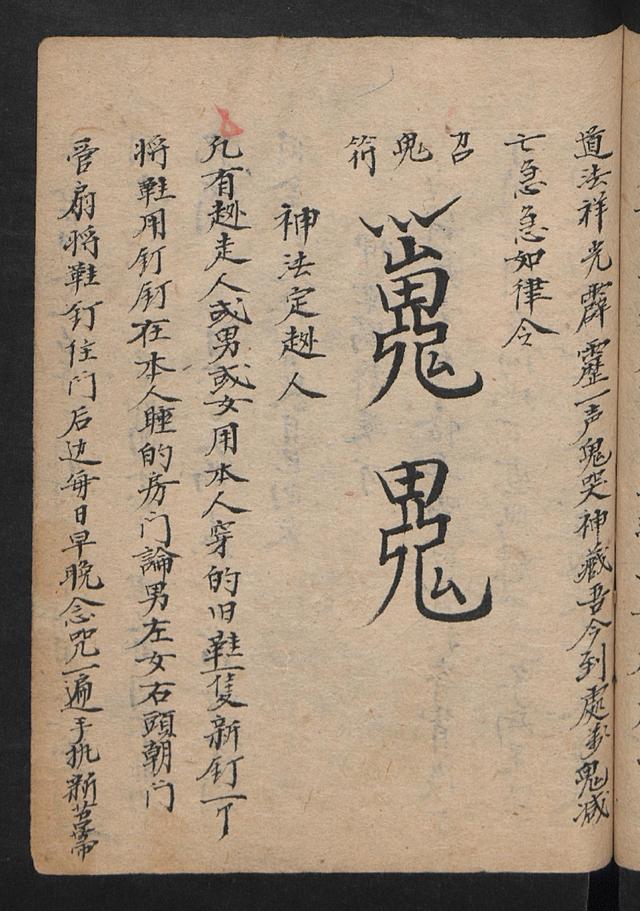 道法祥光霹靂一声鬼哭神藏吾今到處鬼滅
亡急急如律令
召鬼符
神法定趂人
凡有趂走人或男或女用本人穿的旧鞋一隻新釘一个
将鞋用釘釘在本人睡的房门論男左女右頭朝门
管扇将鞋釘住门后边每日早晚念咒一遍手执新苕箒